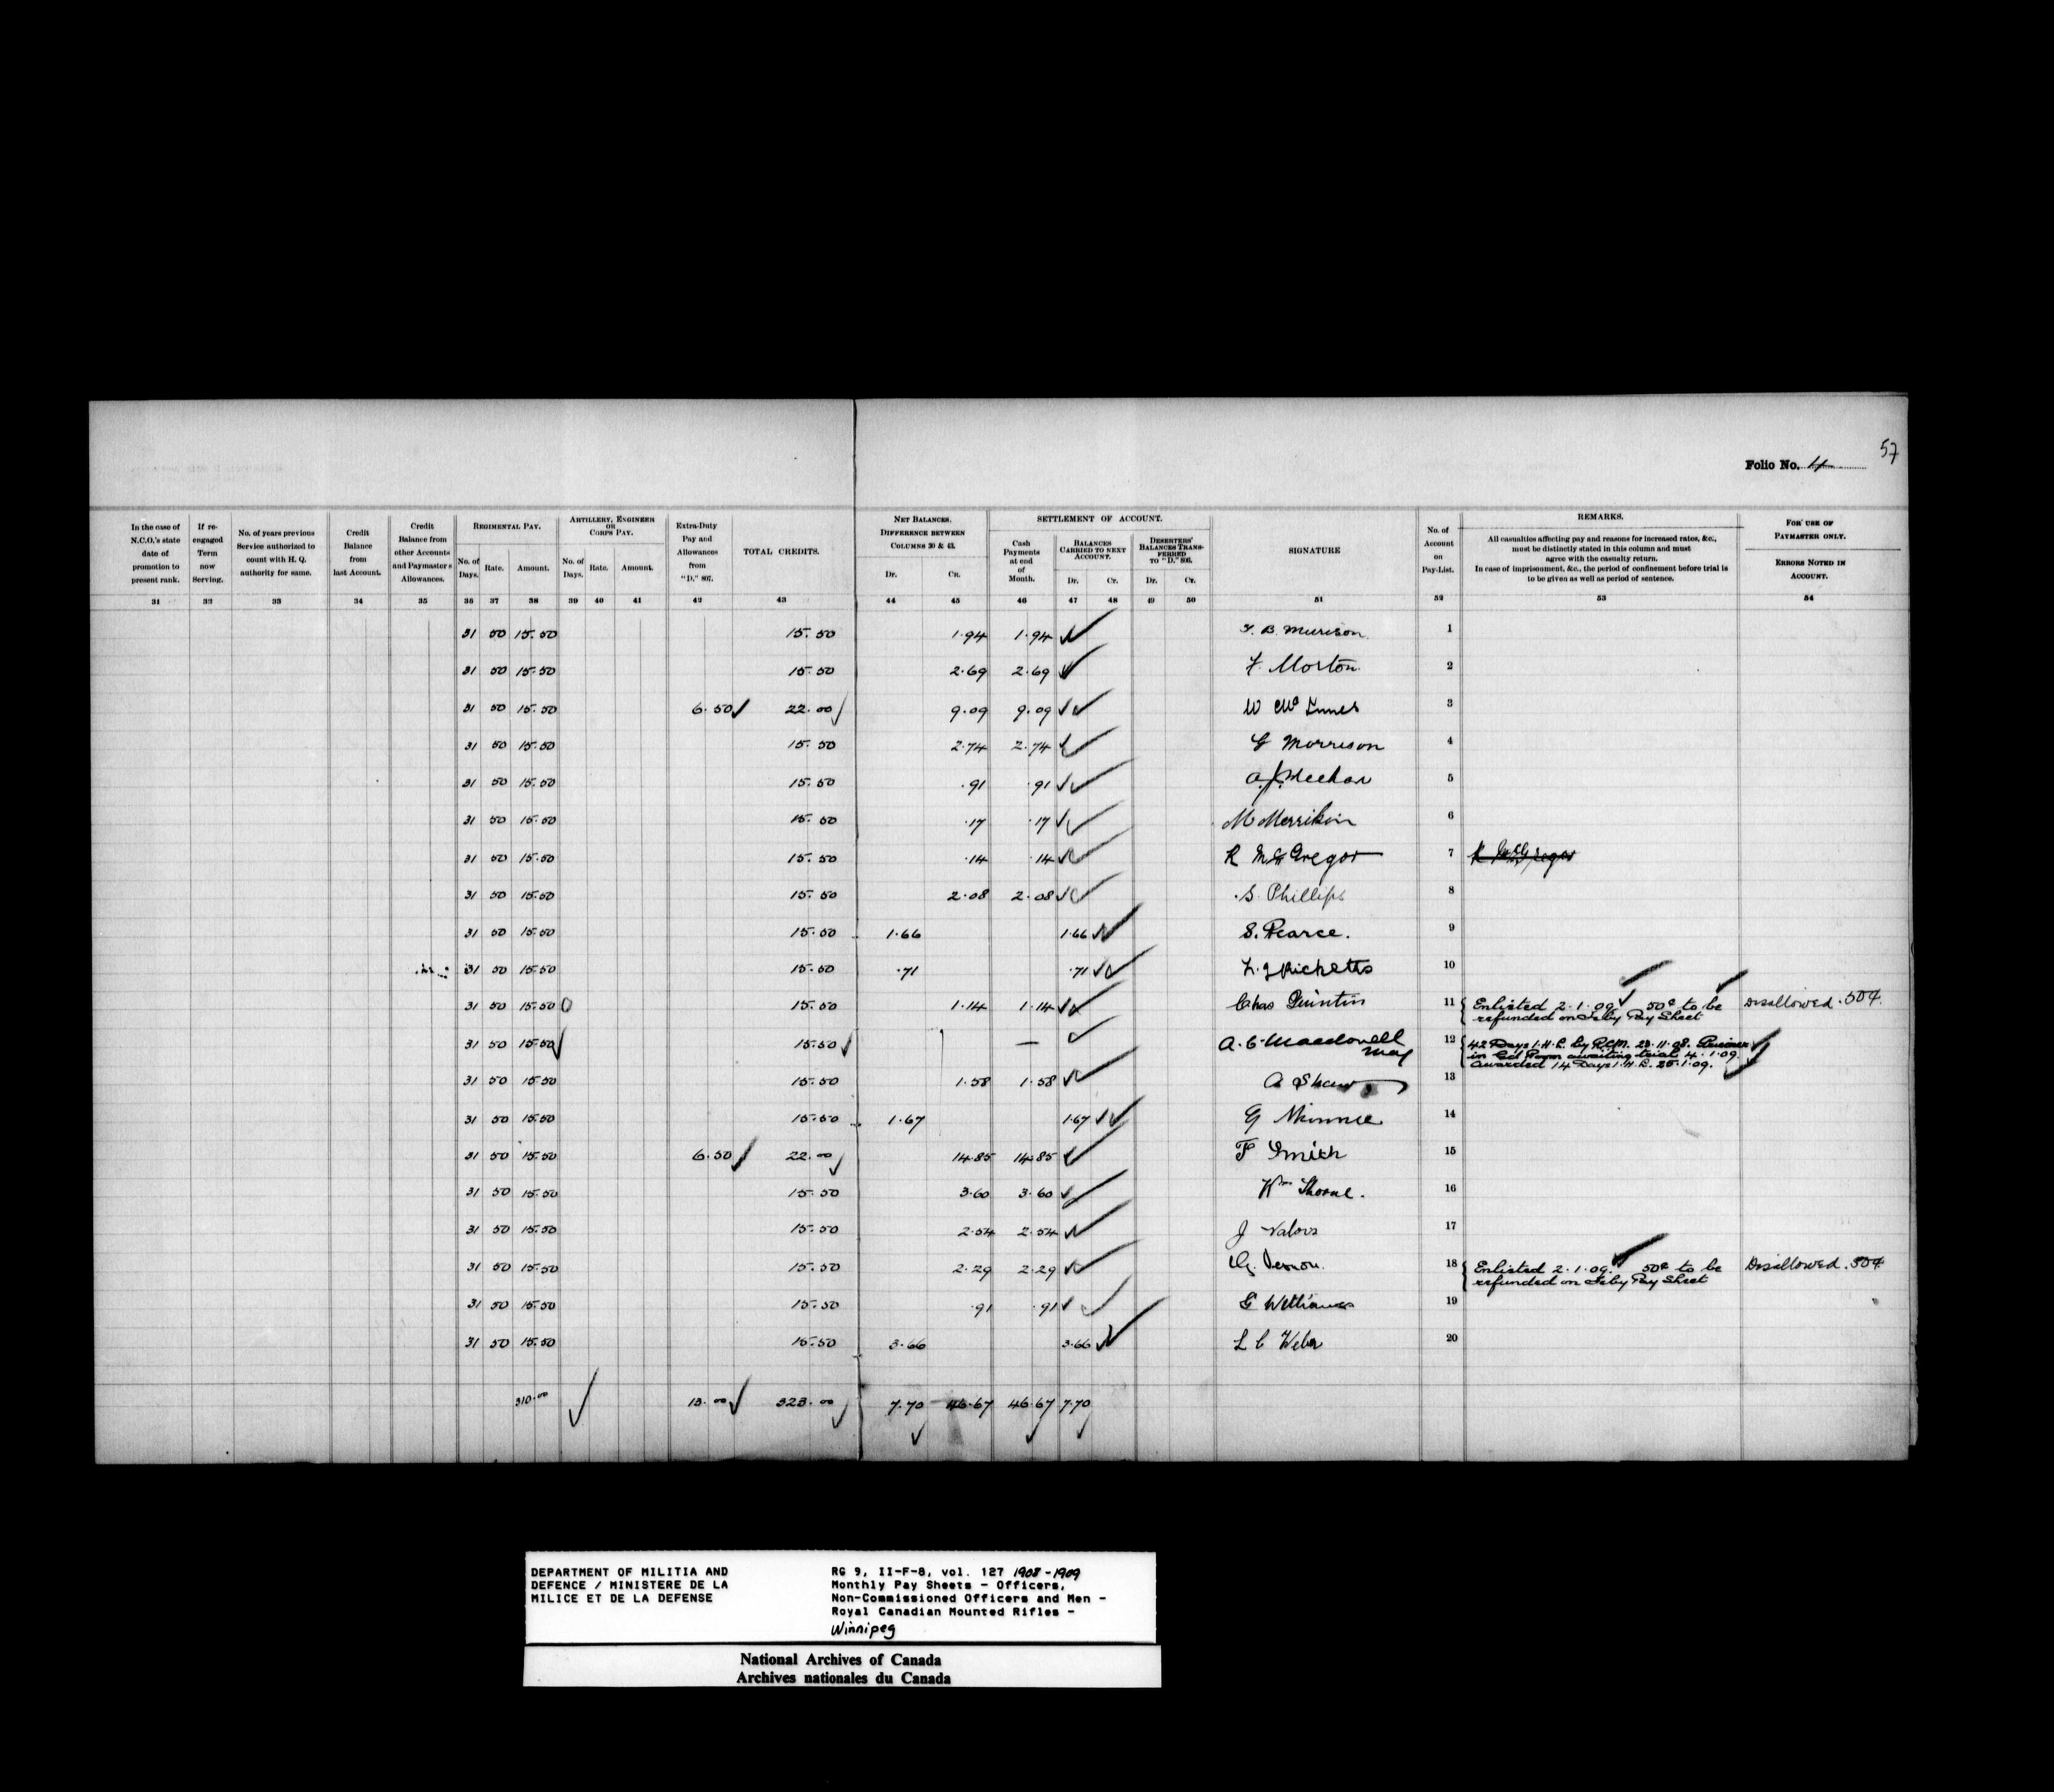 57
Folio No. 4
In the case of N.C.O.'s state date of promotion to present rank.
If re-engaged Term now Serving.
No. of years previous Service authorized to count with H. Q. authority for same.
Credit Balance from last Account.
Credit Balance from other Accounts and Paymasters Allowances.
REGIMENTAL PAY.
No. of Days. Rate. Amount.
ARTILLERY, ENGINEER OR CORPS PAY.
No. of Days. Rate. Amount.
Extra-Duty Pay and Allowances from "D." 807.
TOTAL CREDITS.
NET BALANCES. DIFFERENCE BETWEEN COLUMNS 30 & 43.
Dr. Cr.
SETTLEMENT OF ACCOUNT.
Cash Payments at end of Month.
BALANCES CARRIED TO NEXT ACCOUNT.
Dr. Cr.
DESERTERS' BALANCES TRANSFERRED TO "D." 806.
Dr. Cr.
SIGNATURE
No. of Account on Pay-List.
REMARKS.
All casualties affecting pay and reasons for increased rates, &c., must be distinctly stated in this column and must agree with the casualty return.
In case of imprisonment, &c., the period of confinement before trial is to be given as well as period of sentence.
FOR USE OF PAYMASTER ONLY.
ERRORS NOTED IN ACCOUNT.
31 32 33 34 35 36 37 38 39 40 41 42 43 44 45 46 47 48 49 50 51 52 53 54
31 50 15.50 15.50 1.94 1.94 B. Murison 1
31 50 15.50 15.50 2.69 2.69 F. Morton 2
31 50 15.50 6.50 22.00 9.09 9.09 W McInnes 3
31 50 15.50 15.50 2.74 2.74 G Morrison 4
31 50 15.50 15.50 .91 .91 A. J. Meehan 5
31 50 15.50 15.50 .17 .17 M Merrikin 6
31 50 15.50 15.50 .14 .14 R McGregor 7 R McGregor
31 50 15.50 15.50 2.08 2.08 S. Phillips 8
31 50 15.50 15.50 1.66 1.66 S. Pearce. 9
31 50 15.50 15.50 .71 .71 Ricketts 10
31 50 15.50 15.50 1.14 1.14 Chas Quintin 11 Enlisted 2.1.09 50¢ to be Disallowed .50¢
refunded on Feby Pay Sheet
31 50 15.50 15.50 — A. C. Macdonell 12 42 Days I.H.L. by R.C.M. 23.11.08. Prisoner
Maj in Gd Room awaiting trial 4.1.09.
Awarded 14 Days I.H.L. 25.1.09.
31 50 15.50 15.50 1.58 1.58 A Shaw 13
31 50 15.50 15.50 1.67 1.67 G Skinner 14
31 50 15.50 6.50 22.00 14.85 14.85 F Smith 15
31 50 15.50 15.50 3.60 3.60 Wm Thorne. 16
31 50 15.50 15.50 2.54 2.54 J Valois 17
31 50 15.50 15.50 2.29 2.29 G. Vernon. 18 Enlisted 2.1.09. 50¢ to be Disallowed .50¢
refunded on Feby Pay Sheet
31 50 15.50 15.50 .91 .91 G Williams 19
31 50 15.50 15.50 3.66 3.66 L C Weber 20
310.00 13.00 323.00 7.70 46.67 46.67 7.70
DEPARTMENT OF MILITIA AND
DEFENCE / MINISTERE DE LA
MILICE ET DE LA DEFENSE
RG 9, II-F-8, vol. 127 1908-1909
Monthly Pay Sheets - Officers,
Non-Commissioned Officers and Men -
Royal Canadian Mounted Rifles -
Winnipeg
National Archives of Canada
Archives nationales du Canada